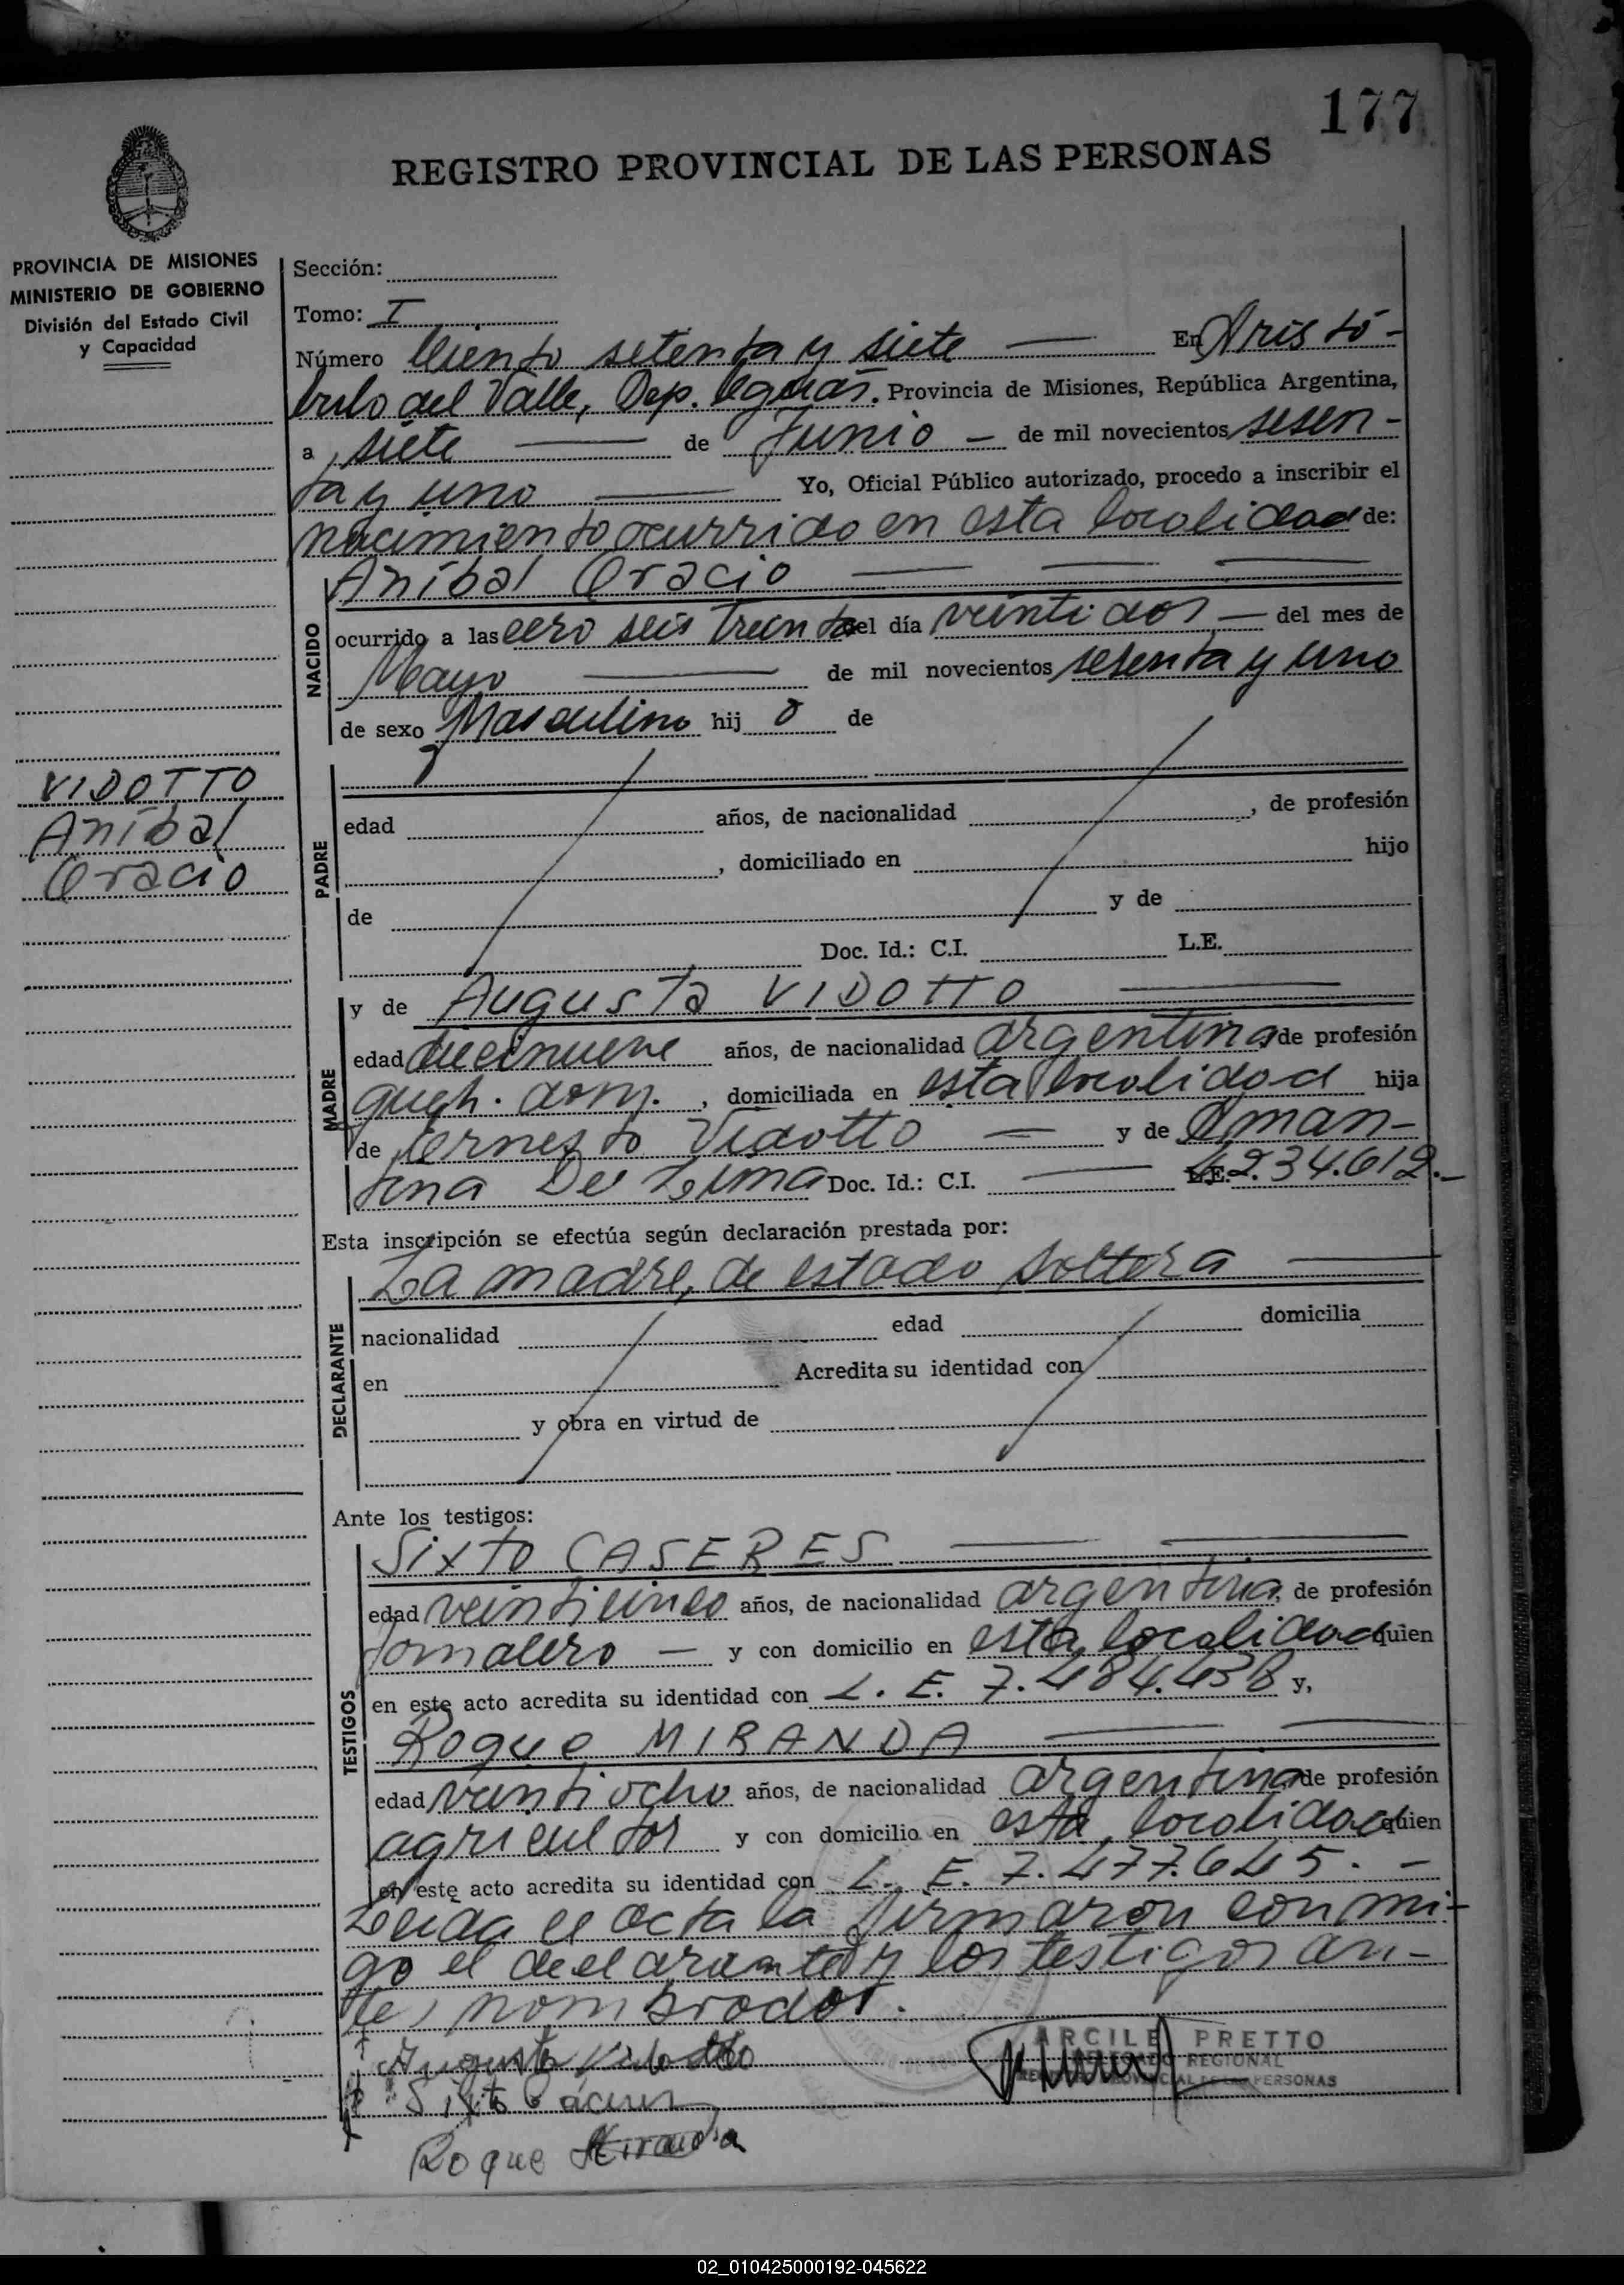 177
REGISTRO PROVINCIAL DE LAS PERSONAS
PROVINCIA DE MISIONES
MINISTERIO DE GOBIERNO
División del Estado Civil
y Capacidad
VIDOTTO
Aníbal
Oracio
Sección:
Tomo: I
Número Ciento setenta y siete — En Aristó-
bulo del Valle, Dep. Cgúas. Provincia de Misiones, República Argentina,
a siete — de Junio — de mil novecientos sesen-
ta y uno — Yo, Oficial Público autorizado, procedo a inscribir el
nacimiento ocurrido en esta localidad de:
NACIDO
Aníbal Oracio — — —
ocurrido a las cero seis treinta del día veintidos — del mes de
Mayo — de mil novecientos sesenta y uno
de sexo Masculino hij o de
PADRE
edad años, de nacionalidad , de profesión
, domiciliado en hijo
de y de
Doc. Id.: C.I. L.E.
MADRE
y de Augusta VIDOTTO —
edad diecinueve años, de nacionalidad argentina de profesión
queh. dom. , domiciliada en esta localidad hija
de Ernesto Vidotto — y de Aman-
tina De Lima Doc. Id.: C.I. — L.E. 4.234.612.—
Esta inscripción se efectúa según declaración prestada por:
DECLARANTE
La madre, de estado soltera —
nacionalidad edad domicilia
en Acredita su identidad con
y obra en virtud de
Ante los testigos:
TESTIGOS
Sixto CASERES — —
edad veinticinco años, de nacionalidad argentina, de profesión
Jornalero — y con domicilio en esta localidad quien
en este acto acredita su identidad con L. E. 7.484.438 y,
Roque MIRANDA — —
edad veintiocho años, de nacionalidad argentina de profesión
agricultor y con domicilio en esta localidad quien
en este acto acredita su identidad con L. E. 7.477.645. —
Leida el acta la firmaron conmi-
go el declarante y los testigos an-
tes nombrados.
Augusta Vidotto
ARCILE PRETTO
DELEGADO REGIONAL
REGISTRO PROVINCIAL DE LAS PERSONAS
Sixto
Roque Miranda
02_010425000192-045622